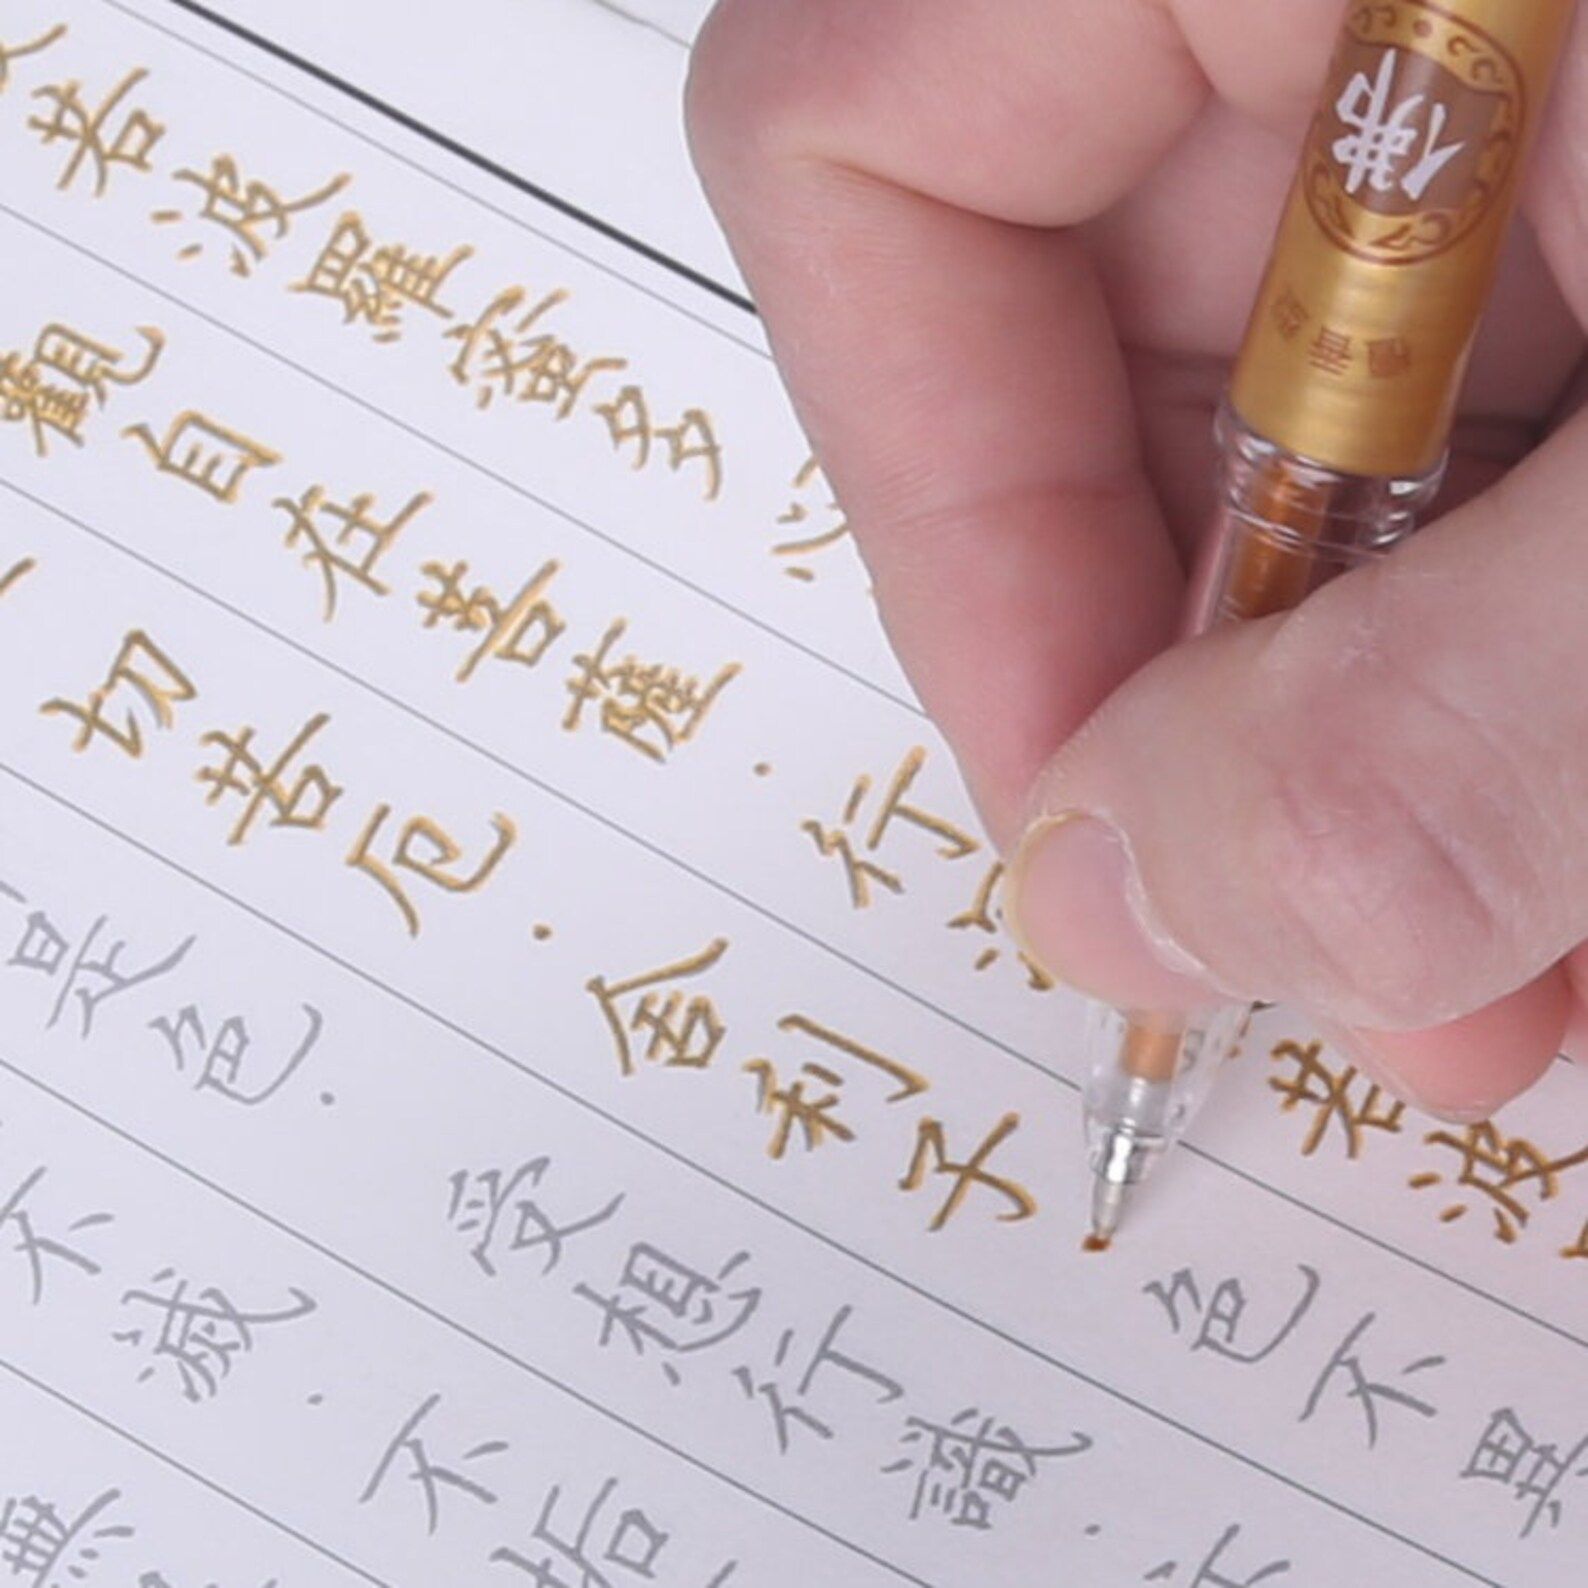 若波羅蜜多
觀自在菩薩．行 若波
切苦厄．舍利子．色不異
是色．受想行識．
不滅．不垢
無
佛